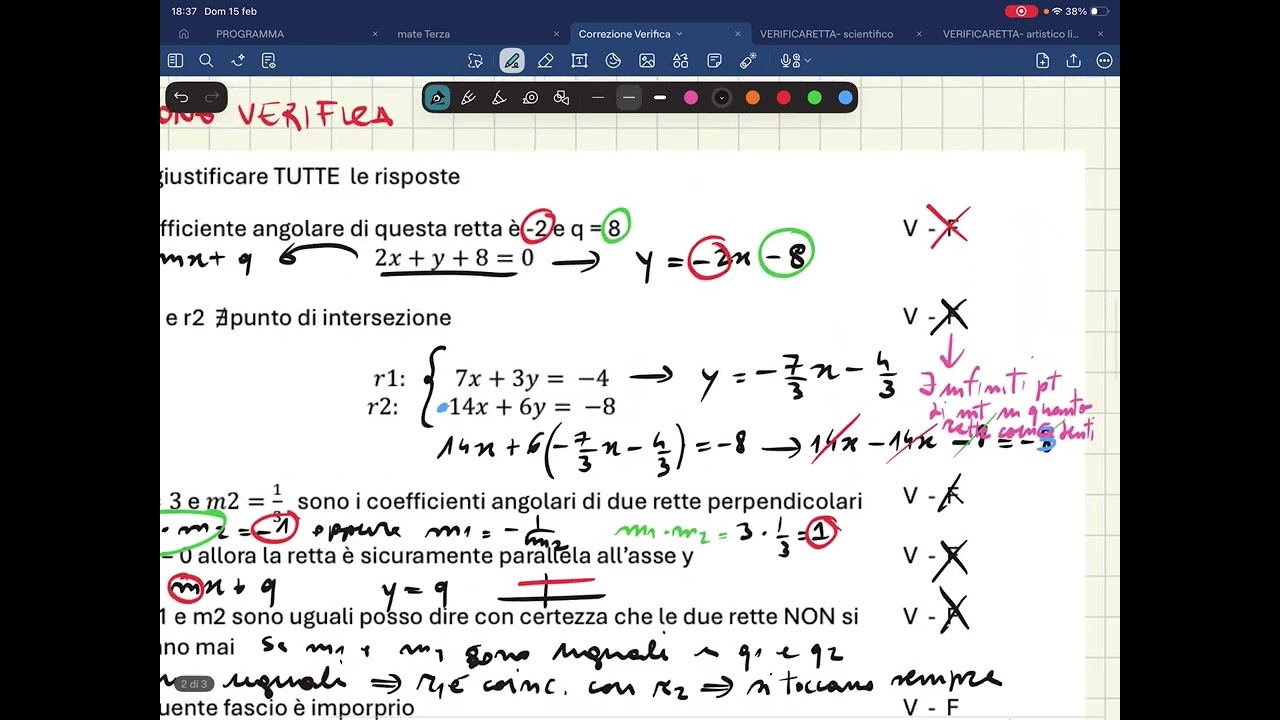 18:37 Dom 15 feb
38%
PROGRAMMA
mate Terza
Correzione Verifica
VERIFICARETTA- scientifico
VERIFICARETTA- artistico li...
VERIFICA
giustificare TUTTE le risposte
fficiente angolare di questa retta è -2 e q = 8 V - F
mx + q 2x + y + 8 = 0 → y = -2x - 8
e r2 ∄ punto di intersezione V - F
r1: 7x + 3y = -4 → y = -7/3 x - 4/3
∃ infiniti pt
di int in quanto
rette coincidenti
r2: 14x + 6y = -8
14x + 6(-7/3 x - 4/3) = -8 → 14x - 14x - 8 = -8
3 e m2 = 1/3 sono i coefficienti angolari di due rette perpendicolari V - F
· m2 = -1 oppure m1 = - 1/m2 m1 · m2 = 3 · 1/3 = 1
= 0 allora la retta è sicuramente parallela all'asse y V - F
mx + q y = q
1 e m2 sono uguali posso dire con certezza che le due rette NON si V - F
no mai Se m1 e m2 sono uguali e q1 e q2
uguali ⇒ r1 è coinc. con r2 ⇒ si toccano sempre
2 di 3
uente fascio è imporprio V - F